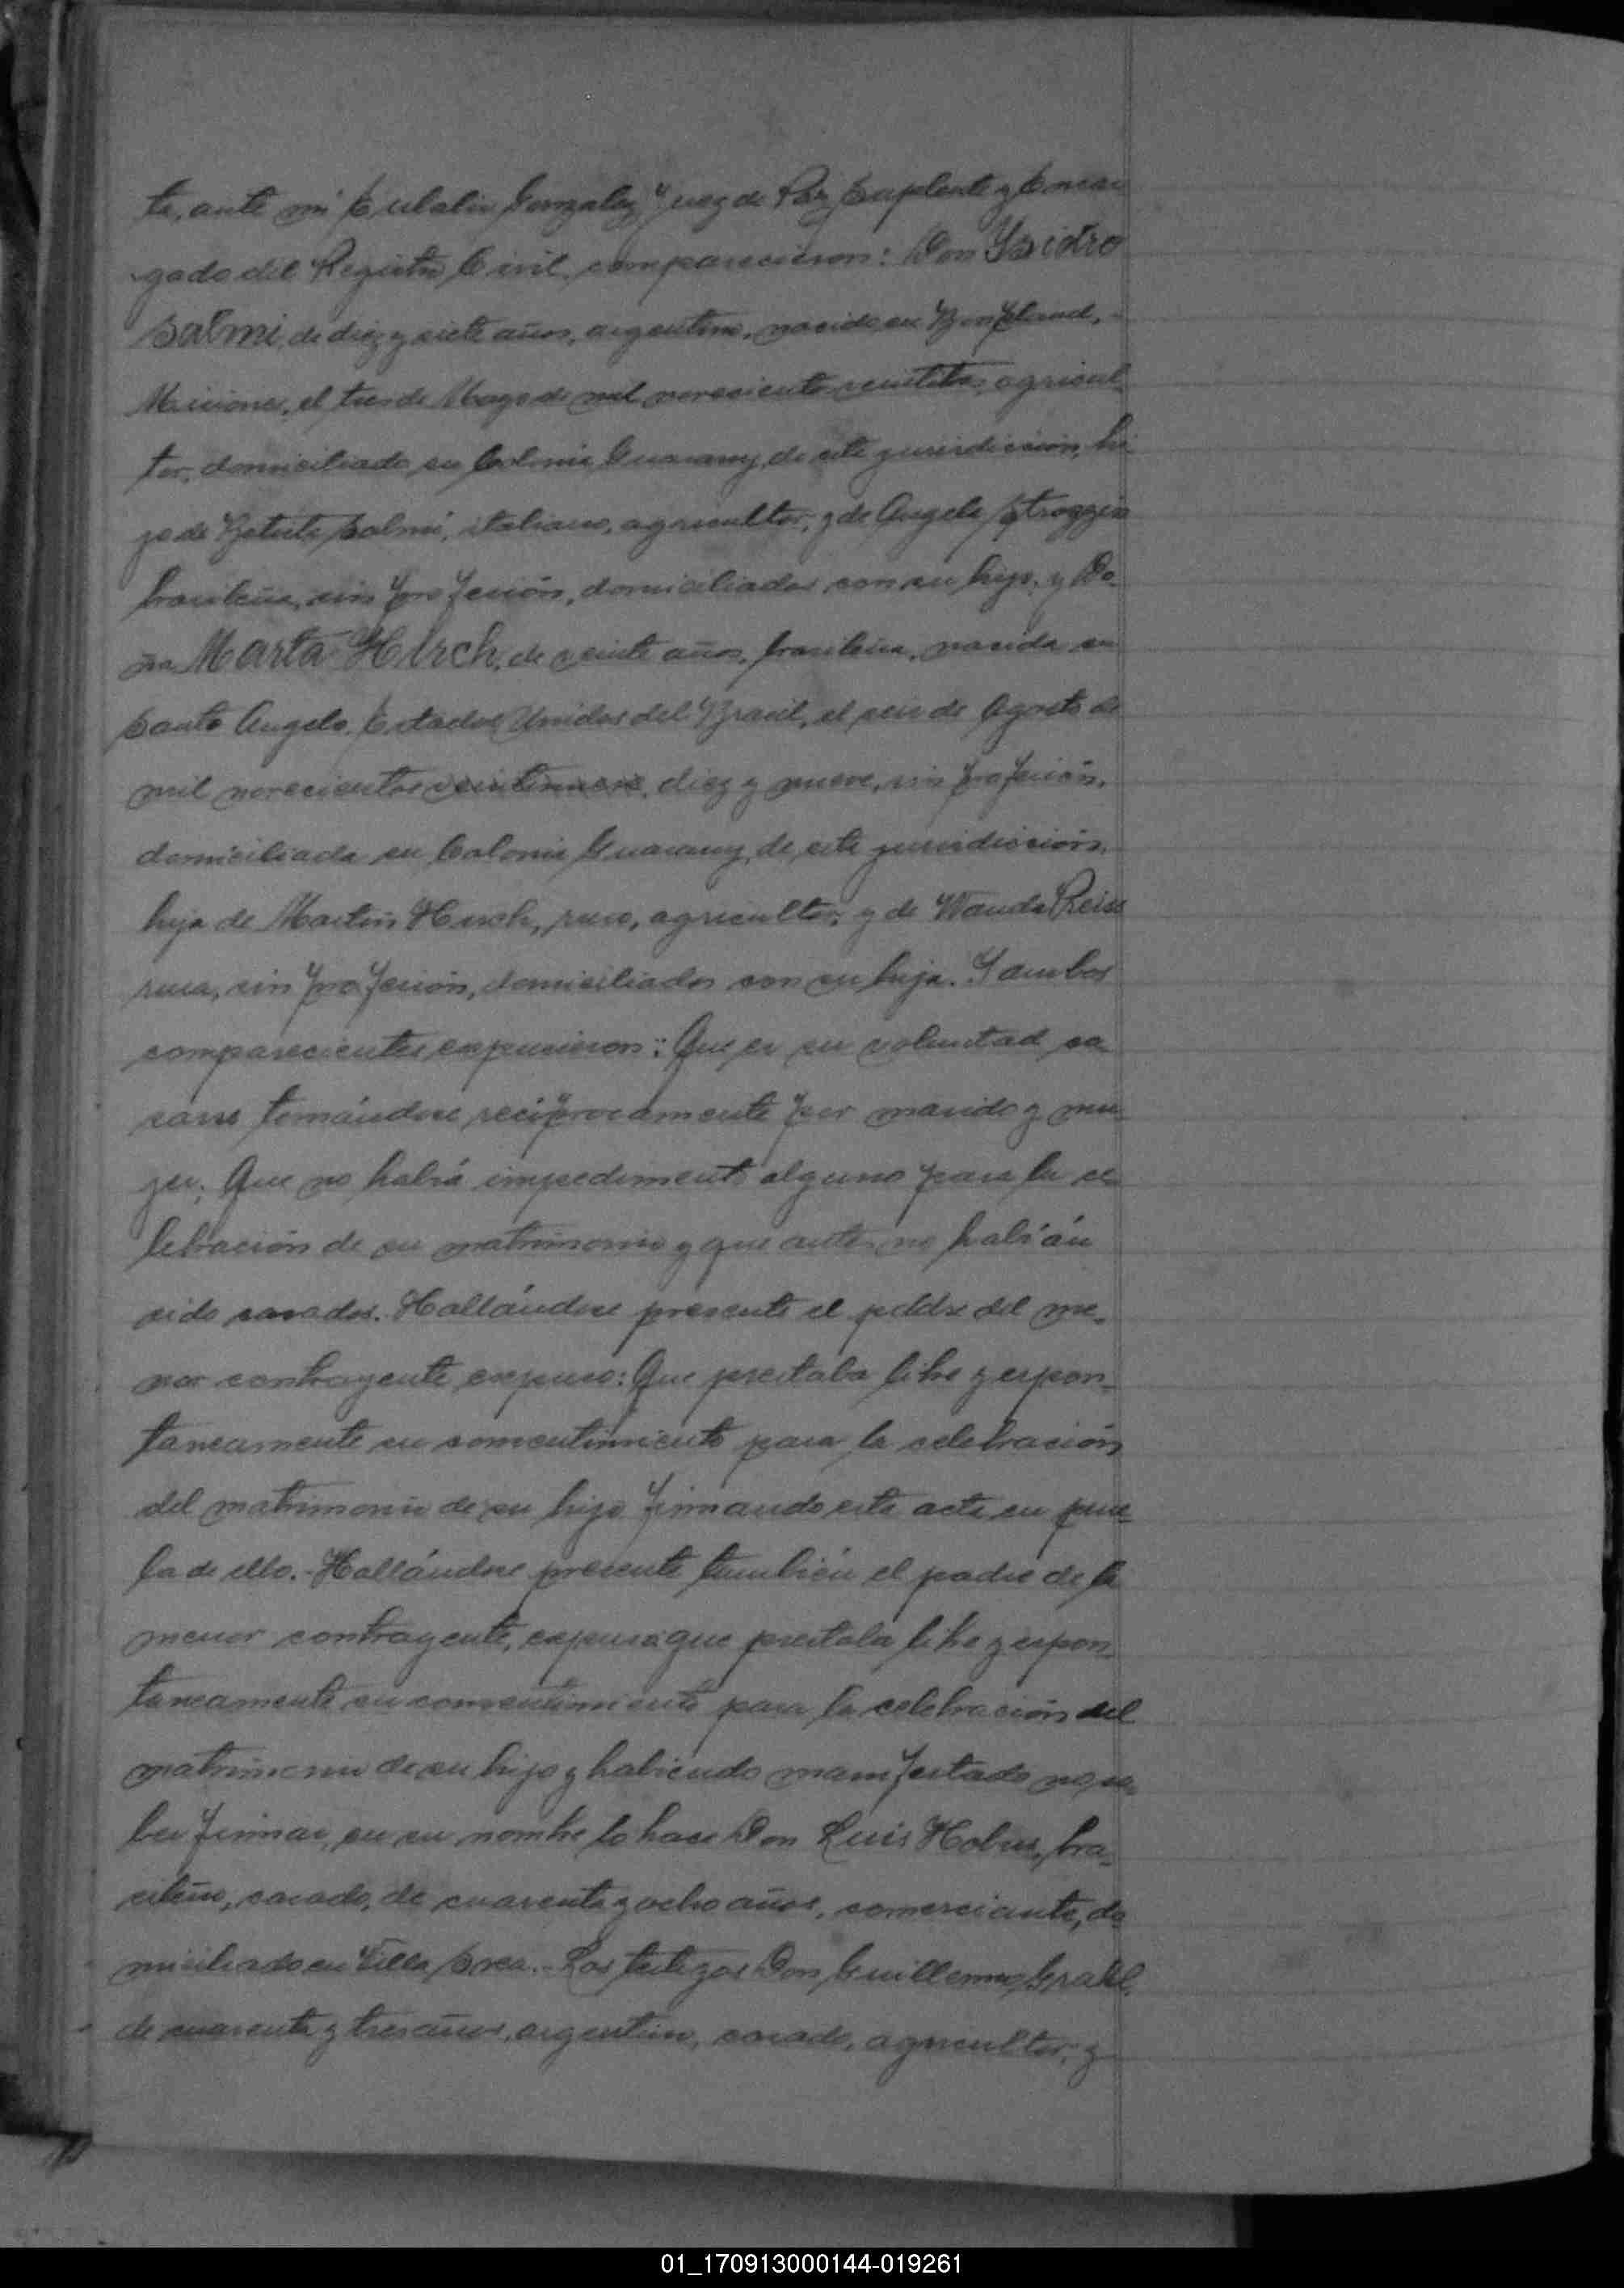 ta, ante mi Eulalio Gonzalez Juez de Paz Suplente y Encar
gado del Registro Civil, comparecieron: Don Ysidro
Salmi, de diez y siete años, argentino, nacido en Bonpland,-
Misiones, el tres de Mayo de mil novecientos veintitres, agricul
tor, domiciliado en Colonia Guarany, de esta jurisdicción, hi
jo de Salmi, italiano, agricultor, y de Angela
brasileña, sin profesión, domiciliados con su hijo; y Do
ña Marta Hirch, de veinte años, brasileña, nacida en
Santo Angelo, Estados Unidos del Brasil, el seis de Agosto de
mil novecientos veintinueve, diez y nueve, sin profesión,
domiciliada en Colonia Guarany, de esta jurisdicción,
hija de Martin Hirch, ruso, agricultor, y de Wanda Reiss
rusa, sin profesión, domiciliados con su hija. Y ambos
comparecientes expusieron: Que es su voluntad ca
sarse tomándose recíprocamente por marido y mu
jer; Que no habiá impedimento alguno para la ce
lebración de su matrimonio y que antes no habián
sido casados. Hallándose presente el padre del me-
nor contrayente, expuso: Que prestaba libre y espon-
taneamente su consentimiento para la celebración
del matrimonio de su hijo firmando esta acta en prue
ba de ello.- Hallándose presente también el padre de la
menor contrayente, expuso que prestaba libre y espon
taneamente su consentimiento para la celebración del
matrimonio de su hijo y habiendo manifestado no sa
ber firmar, en su nombre lo hace Don Luis Hobus, bra-
sileño, casado, de cuarenta y ocho años, comerciante, do
miciliado en Villa Svea.- Los testigos Don Guillermo
de cuarenta y tres años, argentino, casado, agricultor, y
01_170913000144-019261